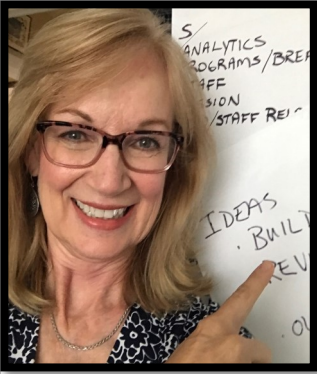 S/
ANALYTICS
ROGRAMS/BREA
AFF
SION
/STAFF REI
IDEAS
· BUILD
REV
. OU